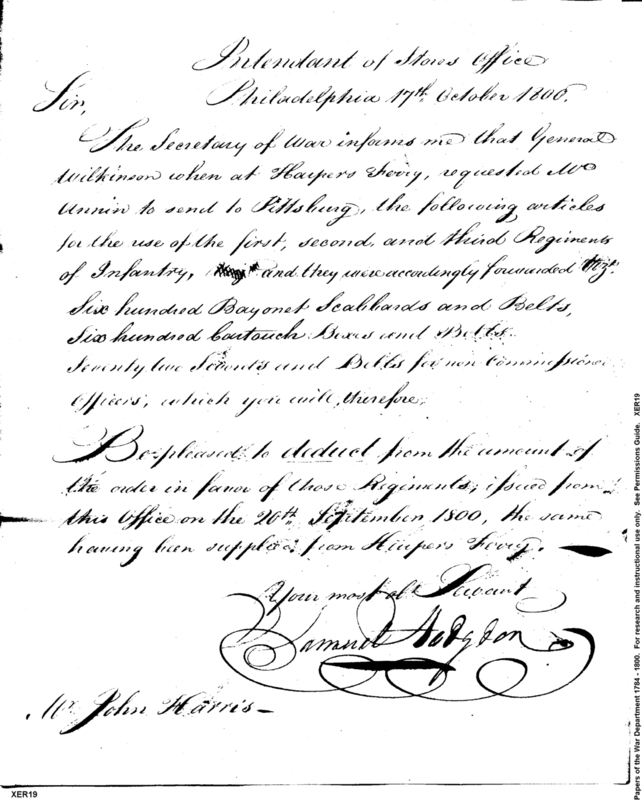 Intendant of Stores Office
Philadelphia 17th. October 1800.
Sir,
The Secretary of War informs me that General
Wilkinson when at Harpers Ferry, requested Mr
Annin to send to Pittsburg, the following articles
for the use of the first, second, and third Regiments
of Infantry, and they were accordingly forwarded Vizt.
Six hundred Bayonet Scabbards and Belts,
Six hundred Cartouch Boxes and Belts.
Seventy two and Belts for non Commissione
Officers, which you will, therefore,
Be pleased to deduct from the amount of
the order in favor of those Regiments, issued from
this Office on the 20th. September 1800, the same
having been supplied from Harpers Ferry.
Your most ob Servant
Samuel Hodgdon
Mr. John Harris
XER19
Papers of the War Department 1784 - 1800. For research and instructional use only. See Permissions Guide. XER19